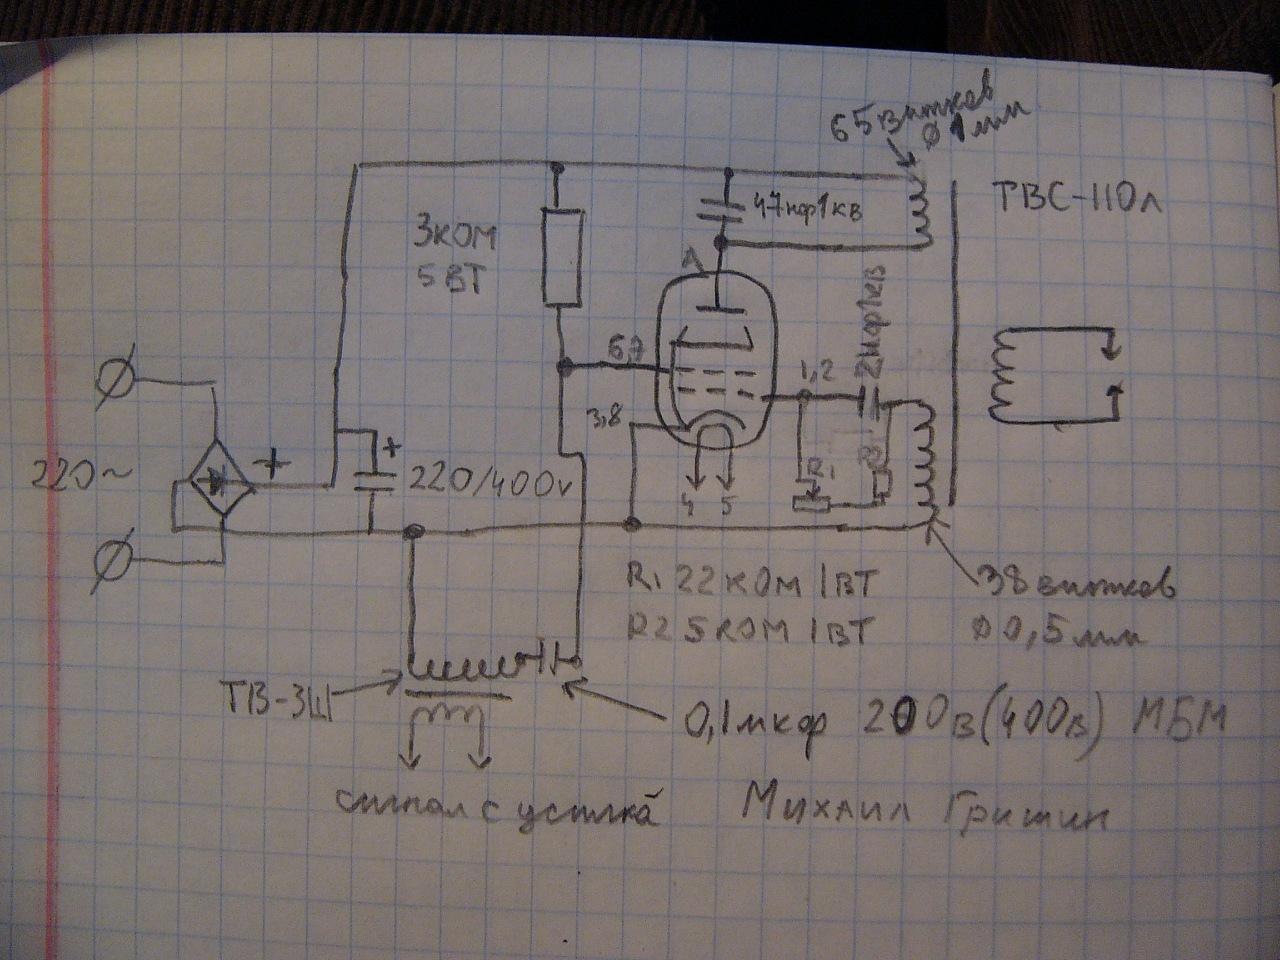 65 витков
Ø 1 мм
ТВС-110л
47нф1кв
3ком
5ВТ
А
2нф1кв
6,7
1,2
3,8
220~
+
+
220/400v
R1
R2
4 5
R1 22 КОМ 1ВТ
R2 5КОМ 1ВТ
38 витков
Ø 0,5мм
ТВ-3Ш
0,1мкф 200в(400в) МБМ
сигнал с усилка
Михаил Гришин